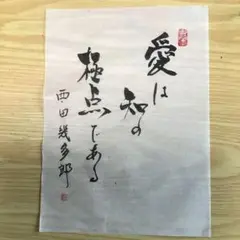 愛は
知の
極点である
西田幾多郎